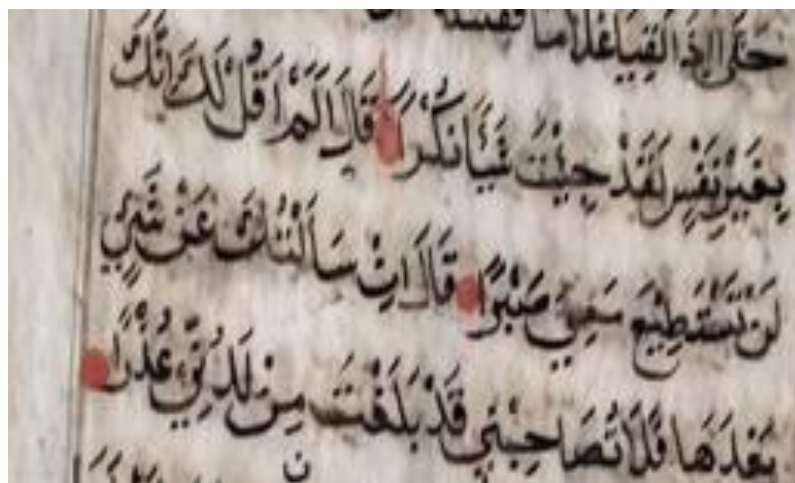 حَتَّى اِذَا لَقِيَا غُلَامًا فَقَتَلَهُ
بِغَيْرِ نَفْسٍ لَقَدْ جِئْتَ شَيْئًا نُكْرًا قَالَ اَلَمْ اَقُلْ لَكَ اِنَّكَ
لَنْ تَسْتَطِيعَ مَعِيَ صَبْرًا قَالَ اِنْ سَاَلْتُكَ عَنْ شَيْءٍ
بَعْدَهَا فَلَا تُصَاحِبْنِي قَدْ بَلَغْتَ مِنْ لَدُنِّي عُذْرًا